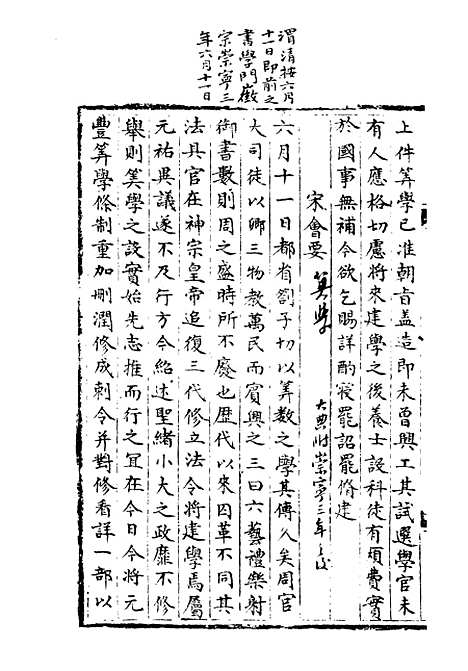 渭清按六月
十一日即前之
書學門徽
宗崇寧三
年六月十一日
上件筭學已准朝旨盖造即未曾興工其試選學官未
有人應格切慮將來建學之後養士設科徒有煩費實
於國事無補今欲乞賜詳酌寢罷詔罷脩建
宋會要 算學 大典附崇寧三年之後
六月十一日都省劄子切以筭數之學其傳久矣周官
大司徒以鄉三物教萬民而賓興之三曰六藝禮樂射
御書數則周之盛時所不廢也歴代以來因革不同其
法具官在神宗皇帝追復三代修立法令將建學焉屬
元祐異議遂不及行方今紹述聖緒小大之政靡不修
舉則筭學之設實始先志推而行之宜在今日今將元
豐筭學條制重加刪潤修成刺令并對修看詳一部以